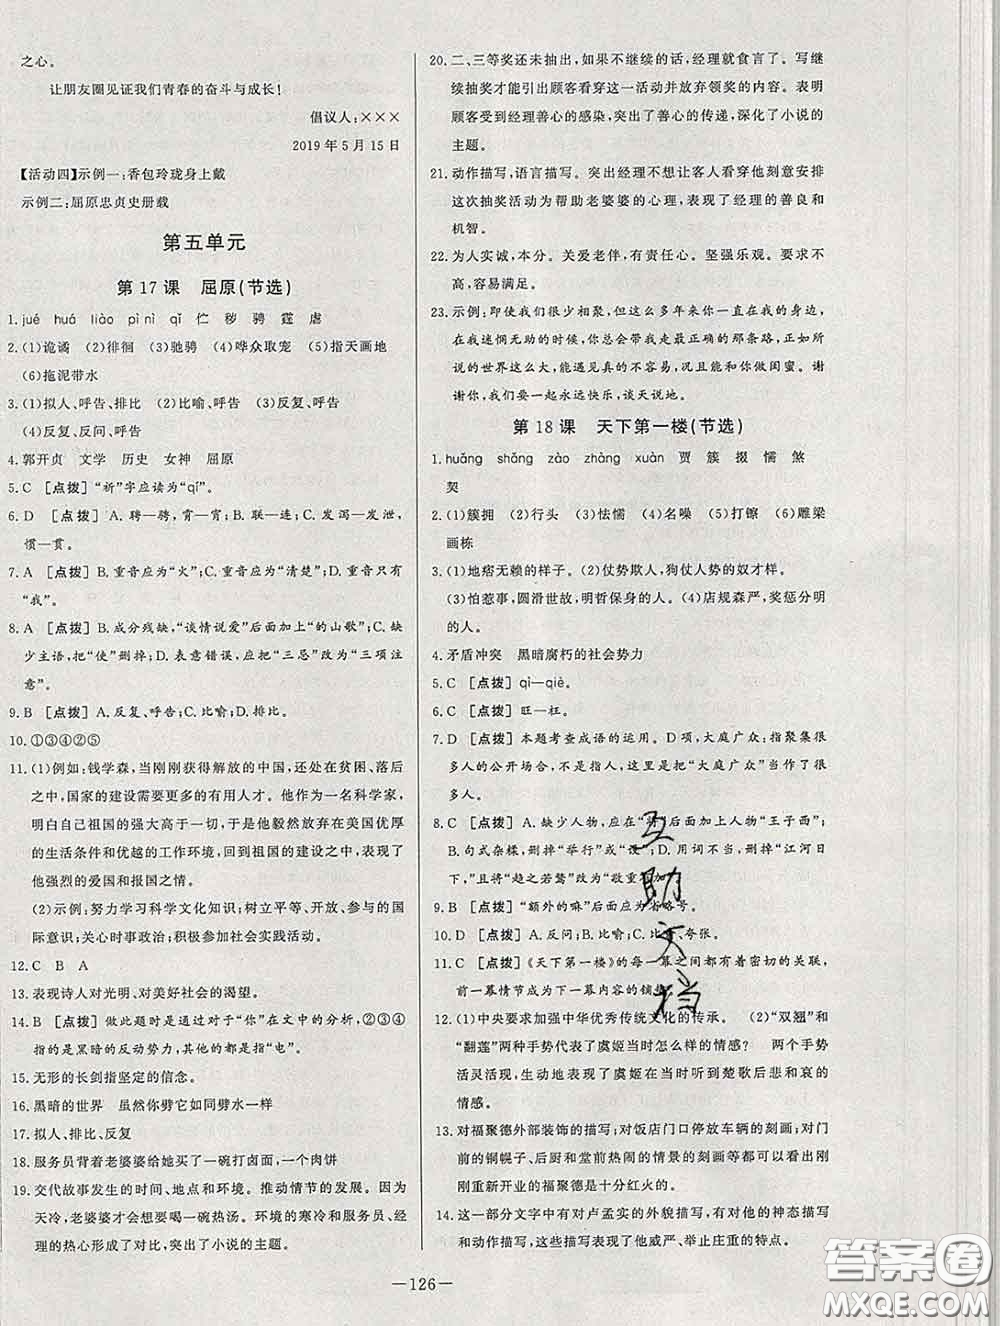 之心。
让朋友圈见证我们青春的奋斗与成长!
倡议人:×××
2019年5月15日
【活动四】示例一:香包玲珑身上戴
示例二:屈原忠贞史册载
第五单元
第17课 屈原(节选)
1. jué huá liào pì nì qǐ 伫 秽 骋 霆 虐
2. (1)诡谲 (2)徘徊 (3)驰骋 (4)哗众取宠 (5)指天画地
(6)拖泥带水
3. (1)拟人、呼告、排比 (2)比喻、呼告 (3)反复、呼告
(4)反复、反问、呼告
4. 郭开贞 文学 历史 女神 屈原
5. C [点拨]“祈”字应读为“qí”。
6. D [点拨]A. 聘—骋,宵—霄;B. 联—连;C. 发泻—发泄,
惯—贯。
7. A [点拨]B. 重音应为“火”;C. 重音应为“清楚”;D. 重音应为
“我”。
8. A [点拨]B. 成分残缺,“谈情说爱”后面加上“的山歌”;C. 缺
少主语,把“使”删掉;D. 表意错误,应把“三忌”改为“三项注
意”。
9. B [点拨]A. 反复、呼告;C. 比喻;D. 排比。
10. ①③④②⑤
11. (1)例如:钱学森,当刚刚获得解放的中国,还处在贫困、落后
之中,国家的建设需要更多的有用人才。他作为一名科学家,
明白自己祖国的强大高于一切,于是他毅然放弃在美国优厚
的生活条件和优越的工作环境,回到祖国的建设之中,表现了
他强烈的爱国和报国之情。
(2)示例:努力学习科学文化知识;树立平等、开放、参与的国
际意识;关心时事政治;积极参加社会实践活动。
12. C B A
13. 表现诗人对光明、对美好社会的渴望。
14. B [点拨]做此题时是通过对于“你”在文中的分析,②③④
指的是黑暗的反动势力,其他的都是指“电”。
15. 无形的长剑指坚定的信念。
16. 黑暗的世界 虽然你劈它如同劈水一样
17. 拟人、排比、反复
18. 服务员背着老婆婆给她买了一碗打卤面,一个肉饼
19. 交代故事发生的时间、地点和环境。推动情节的发展。因为
天冷,老婆婆才想要喝一碗热汤。环境的寒冷和服务员、经
理的热心形成了对比,突出了小说的主题。
20. 二、三等奖还未抽出,如果不继续的话,经理就食言了。写继
续抽奖才能引出顾客看穿这一活动并放弃领奖的内容。表明
顾客受到经理善心的感染,突出了善心的传递,深化了小说的
主题。
21. 动作描写,语言描写。突出经理不想让客人看穿他刻意安排
这次抽奖活动为帮助老婆婆的心理,表现了经理的善良和
机智。
22. 为人实诚,本分。关爱老伴,有责任心。坚强乐观。要求真
善美!
23. 示例:即使我们很少相聚,但这么多年来你一直在我的身旁,
在我迷惘无助的时候,你总会带我走最正确的那条路,正如所
说的世界这么大,能遇见真的不容易,况且能和你做闺蜜。谢
谢你,我们要一起永远快乐,谈天说地。
第18课 天下第一楼(节选)
1. huǎng shǎng zào zhàng xuàn 贾 簇 掇 懦 煞
契
2. (1)簇拥 (2)行头 (3)怯懦 (4)名噪 (5)打镲 (6)雕梁
画栋
3. (1)地痞无赖的样子。(2)仗势欺人,狗仗人势的奴才样。
(3)怕惹事,圆滑世故,明哲保身的人。(4)店规森严,奖惩分明
的人。
4. 矛盾冲突 黑暗腐朽的社会势力
5. C [点拨]qì—qiè。
6. C [点拨]旺—枉。
7. D [点拨]本题考查成语的运用。D项,大庭广众:指聚集很
多人的公开场合,不是指人,这里是把“大庭广众”当作了很
多人。
8. C [点拨]A. 缺少人物,应在“对”后面加上人物“王子西”;
B. 句式杂糅,删掉“举行”或“设”;D. 用词不当,删掉“江河日
下”,且将“趋之若鹜”改为“敬重有加”。
9. B [点拨]“额外的嘛”后面应为省略号。
10. D [点拨]A. 反问;B. 比喻;C. 比喻、夸张。
11. C [点拨]《天下第一楼》的每一幕之间都有着密切的关联,
前一幕情节成为下一幕内容的铺垫。
12. (1)中央要求加强中华优秀传统文化的传承。 (2)“双翘”和
“翻莲”两种手势代表了虞姬当时怎么样的情感? 两个手势
活灵活现,生动地表现了虞姬在当时听到楚歌后悲和哀的
情感。
13. 对福聚德外部装饰的描写;对饭店门口停放车辆的刻画;对门
前的铜幌子、后厨和堂前热闹的情景的刻画等都可以看出刚
刚重新开业的福聚德是十分红火的。
14. 这一部分文字中有对卢孟实的外貌描写,有对他的神态描写
和动作描写,这些描写表现了他威严、举止庄重的特点。
互助文档
—126—
答案圈
MXQE.COM